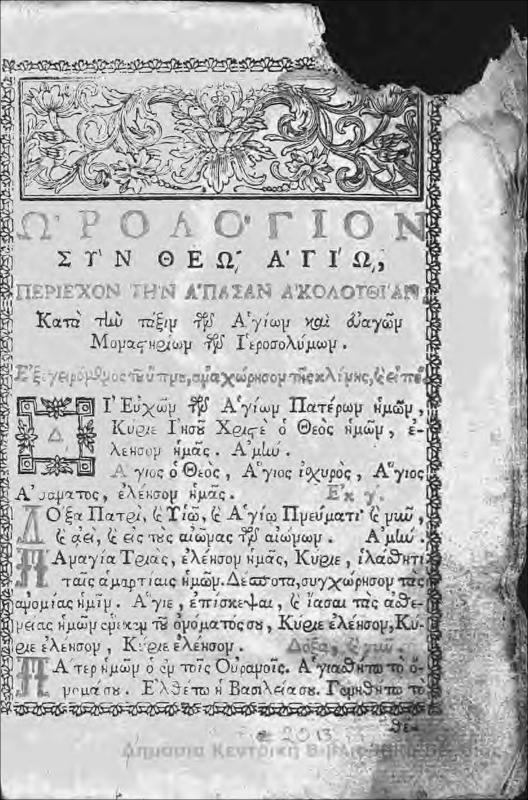 Ω῾ΡΟΛΟ΄ΓΙΟΝ
ΣΥ᾿Ν ΘΕΩ͂, Α῾ΓΙ΄Ω,
ΠΕΡΙΕ΄ΧΟΝ ΤΗ᾿Ν Α῞ΠΑΣΑΝ Α᾿ΚΟΛΟΥΘΙ΄ΑΝ,
Κατὰ τὴν τάξιν τῶν Ἁγίων καὶ εὐαγῶν
Μοναστηρίων τῶν Ἱεροσολύμων.
Ἐξεγειρόμενος τοῦ ὕπνου, ἀναχώρησον τῆς κλίνης, ϗ εἰπέ.
ΔΙ᾿ Εὐχῶν τῶν Ἁγίων Πατέρων ἡμῶν,
Κύριε Ἰησοῦ Χριϛὲ ὁ Θεὸς ἡμῶν, ἐ-
λέησον ἡμᾶς. Ἀμήν.
Ἅγιος ὁ Θεὸς, Ἅγιος ἰσχυρὸς, Ἅγιος
Ἀθάνατος, ἐλέησον ἡμᾶς. Ἐκ γ΄.
ΔΟξα Πατρὶ, ϗ Υἱῷ, ϗ Ἁγίῳ Πνεύματι· ϗ νῦν,
ϗ ἀεὶ, ϗ εἰς τοὺς αἰῶνας τῶν αἰώνων. Ἀμήν.
ΠΑναγία Τριὰς, ἐλέησον ἡμᾶς, Κύριε, ἱλάσθητι
ταῖς ἁμαρτίαις ἡμῶν. Δέσποτα, συγχώρησον τὰς
ἀνομίας ἡμῖν. Ἅγιε, ἐπίσκεψαι, ϗ ἴασαι τὰς ἀσθε-
νείας ἡμῶν ἕνεκεν τοῦ ὀνόματός σου, Κύριε ἐλέησον, Κύ-
ριε ἐλέησον, Κύριε ἐλέησον. Δόξα, ϗ νῦν.
ΠΑτερ ἡμῶν ὁ ἐν τοῖς Οὐρανοῖς. Ἁγιασθήτω τὸ ὄ-
νομά σου. Ἐλθέτω ἡ Βασιλεία σου. Γενηθήτω τὸ
θέ-
2013
Δημόσια Κεντρική Βιβλιοθήκη Βέροιας